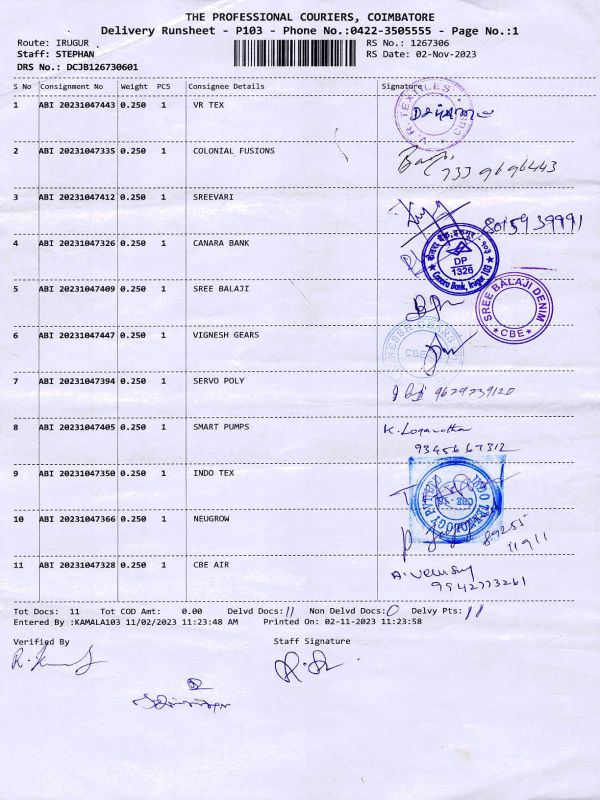 THE PROFESSIONAL COURIERS, COIMBATORE
Delivery Runsheet - P103 - Phone No.:0422-3505555 - Page No.:1
Route: IRUGUR RS No.: 1267306
Staff: STEPHAN RS Date: 02-Nov-2023
DRS No.: DCJB126730601
S No Consignment No Weight PCS Consignee Details Signature
1 ABI 20231047443 0.250 1 VR TEX
2 ABI 20231047335 0.250 1 COLONIAL FUSIONS
733 9696443
3 ABI 20231047412 0.250 1 SREEVARI
8015939991
4 ABI 20231047326 0.250 1 CANARA BANK
DP
1326
Canara Bank, Irugur
5 ABI 20231047409 0.250 1 SREE BALAJI
SREE BALAJI DENIM
CBE
6 ABI 20231047447 0.250 1 VIGNESH GEARS
CBE
7 ABI 20231047394 0.250 1 SERVO POLY
9629239120
8 ABI 20231047405 0.250 1 SMART PUMPS
K. Loganatha
9345667312
9 ABI 20231047350 0.250 1 INDO TEX
10 ABI 20231047366 0.250 1 NEUGROW
89255
11911
11 ABI 20231047328 0.250 1 CBE AIR
9942773261
Tot Docs: 11 Tot COD Amt: 0.00 Delvd Docs: 11 Non Delvd Docs: 0 Delvy Pts: 11
Entered By :KAMALA103 11/02/2023 11:23:48 AM Printed On: 02-11-2023 11:23:58
Verified By Staff Signature